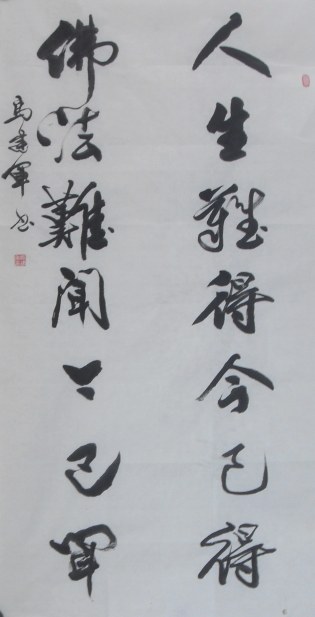 人生難得今已得
佛法難聞今已聞
馬建軍書